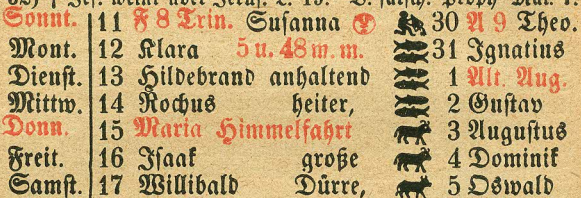 Sonnt. 11 F 8 Trin. Susanna 30 A 9 Theo.
Mont. 12 Klara 5 u. 48 m. m. 31 Ignatius
Dienst. 13 Hildebrand anhaltend 1 Alt. Aug.
Mittw. 14 Rochus heiter, 2 Gustav
Donn. 15 Maria Himmelfahrt 3 Augustus
Freit. 16 Isaak große 4 Dominik
Samst. 17 Willibald Dürre, 5 Oswald